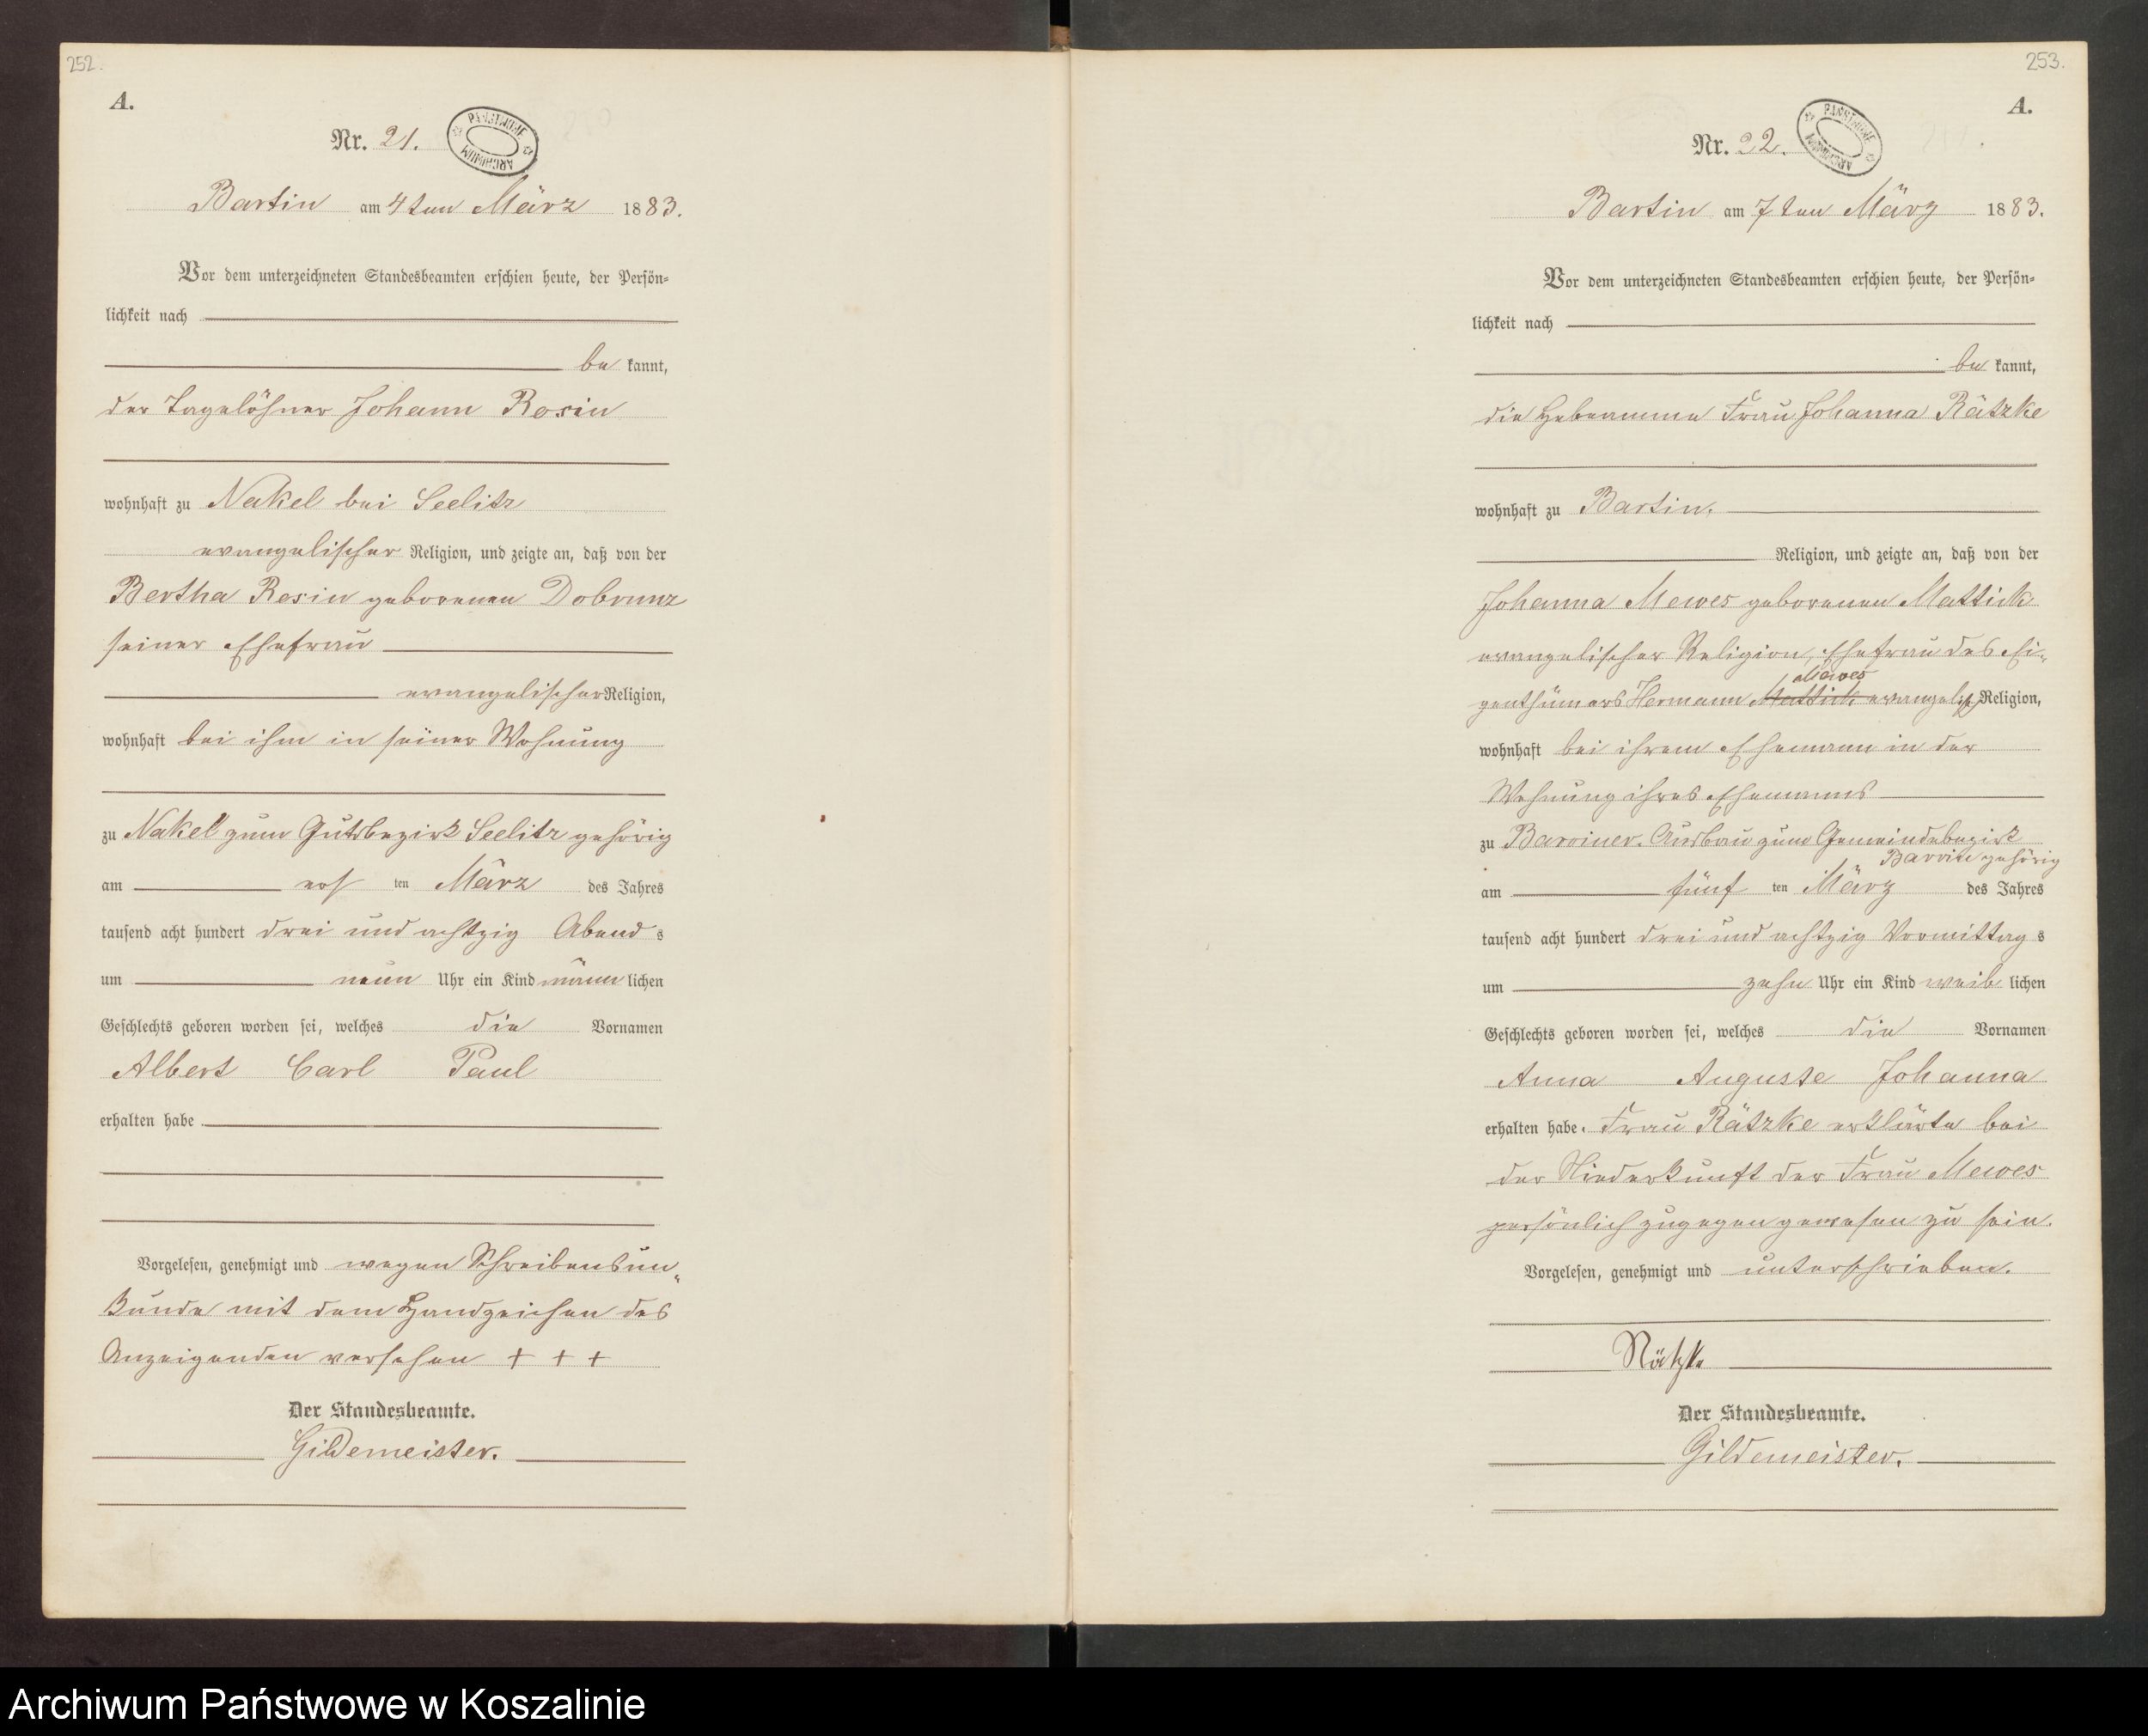 252.
A.
Nr. 21.
PAŃSTWOWE ARCHIWUM
Bartin am 4ten März 1883.
Vor dem unterzeichneten Standesbeamten erschien heute, der Persön=
lichkeit nach
be kannt,
der Tagelöhner Johann Rosin
wohnhaft zu Nakel bei Seelitz
evangelischer Religion, und zeigte an, daß von der
Bertha Rosin geborenen Dobrunz
seiner Ehefrau
evangelischer Religion,
wohnhaft bei ihm in seiner Wohnung
zu Nakel zum Gutsbezirk Seelitz gehörig
am ers ten März des Jahres
tausend acht hundert drei und achtzig Abend s
um neun Uhr ein Kind männ lichen
Geschlechts geboren worden sei, welches die Vornamen
Albert Carl Paul
erhalten habe
Vorgelesen, genehmigt und wegen Schreibensun„
kunde mit dem Handzeichen des
Anzeigenden versehen + + +
Der Standesbeamte.
Gildemeister.
253.
A.
Nr. 22.
PAŃSTWOWE ARCHIWUM
Bartin am 7ten März 1883.
Vor dem unterzeichneten Standesbeamten erschien heute, der Persön=
lichkeit nach
be kannt,
die Hebeamme Frau Johanna Rätzke
wohnhaft zu Bartin.
Religion, und zeigte an, daß von der
Johanna Mewes geborenen Mattick
evangelischer Religion, Ehefrau des Ei„
Mewes
genthümers Hermann Mattick evangelisch Religion,
wohnhaft bei ihrem Ehemann in der
Wohnung ihres Ehemanns
zu Barviner. Ausbau zum Gemeindebezirk
Barvin gehörig
am fünf ten März des Jahres
tausend acht hundert drei und achtzig Vormittag s
um zehn Uhr ein Kind weib lichen
Geschlechts geboren worden sei, welches die Vornamen
Anna Auguste Johanna
erhalten habe. Frau Rätzke erklärte bei
der Niederkunft der Frau Mewes
persönlich zugegen gewesen zu sein.
Vorgelesen, genehmigt und unterschrieben.
Rätzke
Der Standesbeamte.
Gildemeister.
Archiwum Państwowe w Koszalinie